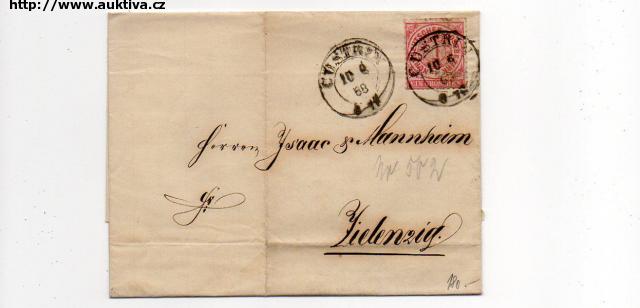 http://www.auktiva.cz
CUSTRIN
10 6
68
CUSTRIN
10 6
68
Herren Isaac & Mannheim
Fr.
Zielenzig.
180.-